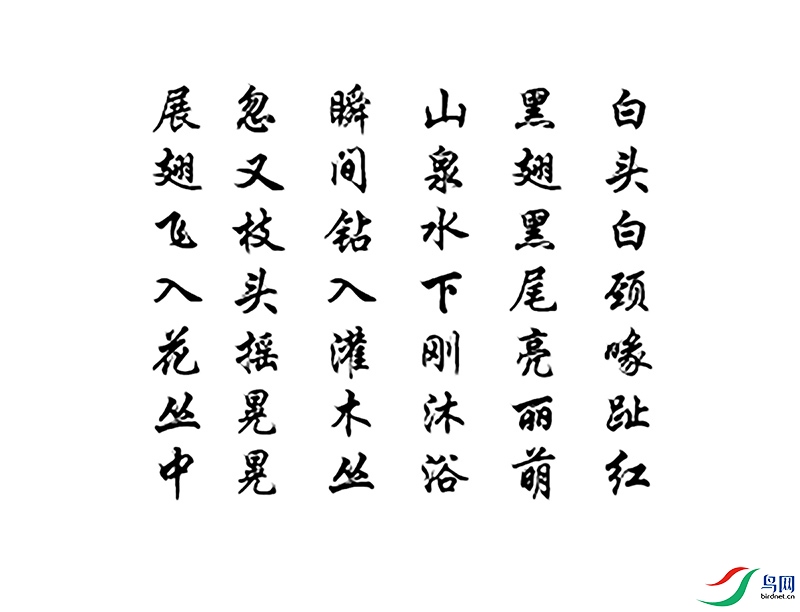 白头白颈喙趾红
黑翅黑尾亮丽萌
山泉水下刚沐浴
瞬间钻入灌木丛
忽又枝头摇晃晃
展翅飞入花丛中
鸟网
birdnet.cn